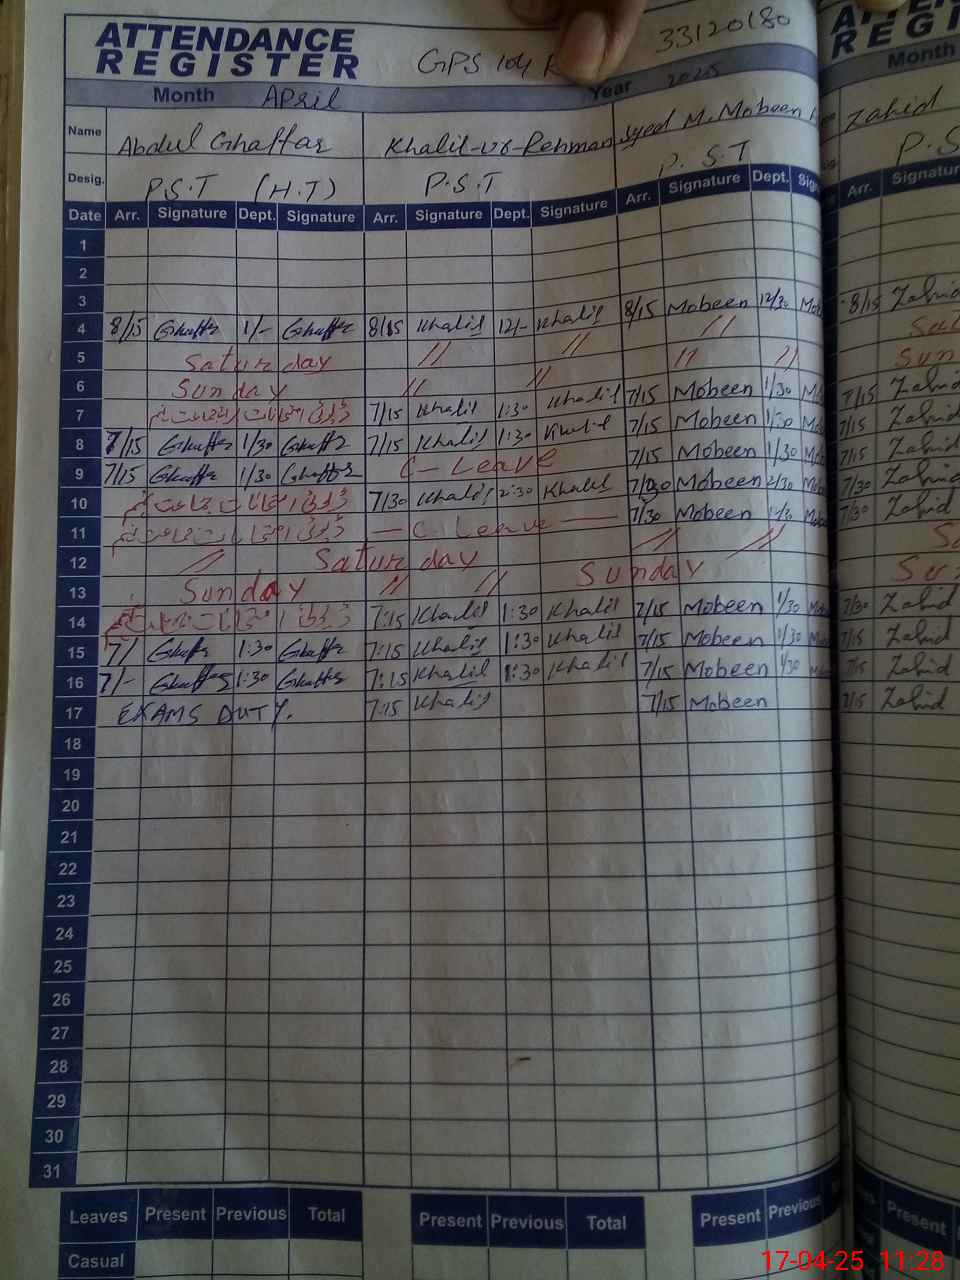 ATTENDANCE REGISTER GPS 104 R 33120180
Month April Year 2025
Name Abdul Ghaffar Khalil-ur-Rehman Syed M. Mobeen
Desig. P.S.T (H.T) P.S.T P.S.T
Date Arr. Signature Dept. Signature Arr. Signature Dept. Signature Arr. Signature Dept.
1
2
3
4 8/15 Ghaffar 1/- Ghaffar 8/15 Khalil 12/- Khalil 8/15 Mobeen 12/30
5 Saturday // // //
6 Sunday // // // //
7 7/15 Khalil 1:30 Khalil 7/15 Mobeen 1/30
8 7/15 Ghaffar 1/30 Ghaffar 7/15 Khalil 1:30 Khalil 7/15 Mobeen 1:30
9 7/15 Ghaffar 1/30 Ghaffar C-Leave 7/15 Mobeen 1/30
10 7/30 Khalil 2:30 Khalil 7/30 Mobeen 2/30
11 — C. Leave — 7/30 Mobeen
12 // Saturday // //
13 Sunday // // Sunday
14 7:15 Khalil 1:30 Khalil 7/15 Mobeen 1/30
15 7/ Ghaffar 1:30 Ghaffar 7:15 Khalil 1:30 Khalil 7/15 Mobeen 1/30
16 7/- Ghaffar 1:30 Ghaffar 7:15 Khalil 1:30 Khalil 7/15 Mobeen 1/30
17 EXAMS DUTY. 7:15 Khalil 7/15 Mobeen
18
19
20
21
22
23
24
25
26
27
28
29
30
31
Leaves Present Previous Total Present Previous Total Present Previous
Casual
Month
Zahid
P.S
Arr. Signature
8/15 Zahid
7/15 Zahid
7/15 Zahid
7/15 Zahid
7/30 Zahid
7/30 Zahid
7/30 Zahid
7/15 Zahid
7/15 Zahid
7/15 Zahid
Present
17-04-25 11:28